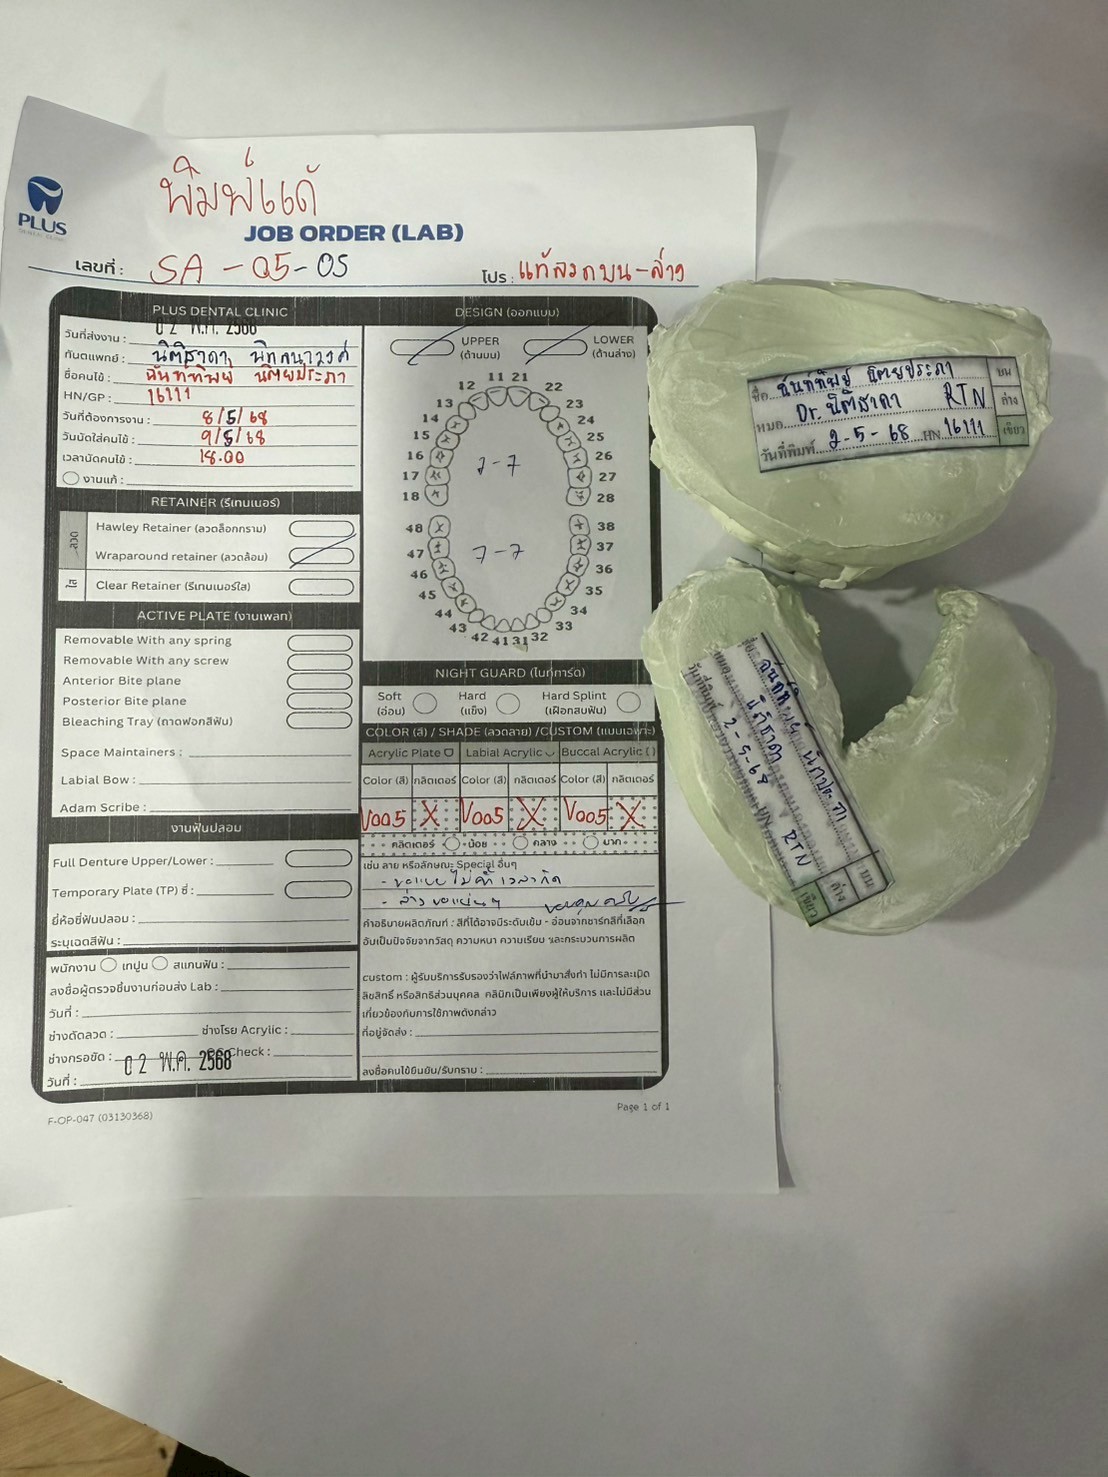 พิมพ์แต้
PLUS
DENTAL CLINIC
JOB ORDER (LAB)
เลขที่ : SA - 05 - 05
โปร : บน-ล่าง
PLUS DENTAL CLINIC
วันที่ส่งงาน : 02 พ.ค. 2568
ทันตแพทย์ : นิติธาดา
ชื่อคนไข้ : ฉันท์ทิพย์ นิตยประภา
HN/GP : 16111
วันที่ต้องการงาน : 8/5/68
วันนัดใส่คนไข้ : 9/5/68
เวลานัดคนไข้ : 18.00
งานแก้ :
RETAINER (รีเทนเนอร์)
ลวด
Hawley Retainer (ลวดล็อกกราม)
Wraparound retainer (ลวดล้อม)
ใส
Clear Retainer (รีเทนเนอร์ใส)
ACTIVE PLATE (งานเพลท)
Removable With any spring
Removable With any screw
Anterior Bite plane
Posterior Bite plane
Bleaching Tray (ถาดฟอกสีฟัน)
Space Maintainers :
Labial Bow :
Adam Scribe :
งานฟันปลอม
Full Denture Upper/Lower :
Temporary Plate (TP) ซี่ :
ยี่ห้อซี่ฟันปลอม :
ระบุเฉดสีฟัน :
พนักงาน เทปูน สแกนฟัน :
ลงชื่อผู้ตรวจชิ้นงานก่อนส่ง Lab :
วันที่ :
ช่างดัดลวด : ช่างโรย Acrylic :
ช่างกรอขัด : QC Check :
02 พ.ค. 2568
วันที่ :
F-OP-047 (03130368)
DESIGN (ออกแบบ)
UPPER
(ด้านบน)
LOWER
(ด้านล่าง)
11 21
12 22
13 23
14 24
15 25
16 26
7-7
17 27
18 28
48 38
47 37
7-7
46 36
45 35
44 34
43 33
42 41 31 32
NIGHT GUARD (ไนท์การ์ด)
Soft
(อ่อน)
Hard
(แข็ง)
Hard Splint
(เฝือกสบฟัน)
COLOR (สี) / SHADE (ลวดลาย) /CUSTOM (แบบเฉพาะ)
Acrylic Plate Labial Acrylic Buccal Acrylic ( )
Color (สี) กลิตเตอร์ Color (สี) กลิตเตอร์ Color (สี) กลิตเตอร์
V005 X V005 X V005 X
กลิตเตอร์ น้อย กลาง มาก
เช่น ลาย หรือลักษณะ Special อื่นๆ
- ขอแบบไม่ค้ำเวลากัด
- ล่าง ขอแน่นๆ ขอบคุณครับ
คำอธิบายผลิตภัณฑ์ : สีที่ได้อาจมีระดับเข้ม - อ่อนจากชาร์ทสีที่เลือก
อันเป็นปัจจัยจากวัสดุ ความหนา ความเรียบ และกระบวนการผลิต
custom : ผู้รับบริการรับรองว่าไฟล์ภาพที่นำมาสั่งทำ ไม่มีการละเมิด
ลิขสิทธิ์ หรือสิทธิส่วนบุคคล คลินิกเป็นเพียงผู้ให้บริการ และไม่มีส่วน
เกี่ยวข้องกับการใช้ภาพดังกล่าว
ที่อยู่จัดส่ง :
ลงชื่อคนไข้ยืนยัน/รับทราบ :
Page 1 of 1
ชื่อ ฉันท์ทิพย์ นิตยประภา บน
หมอ Dr. นิติธาดา RTN ล่าง
วันที่พิมพ์ 2-5-68 HN 16111 เขียว
ชื่อ ฉันท์ทิพย์ บน
หมอ นิติธาดา RTN ล่าง
วันที่พิมพ์ 2-5-68 HN เขียว